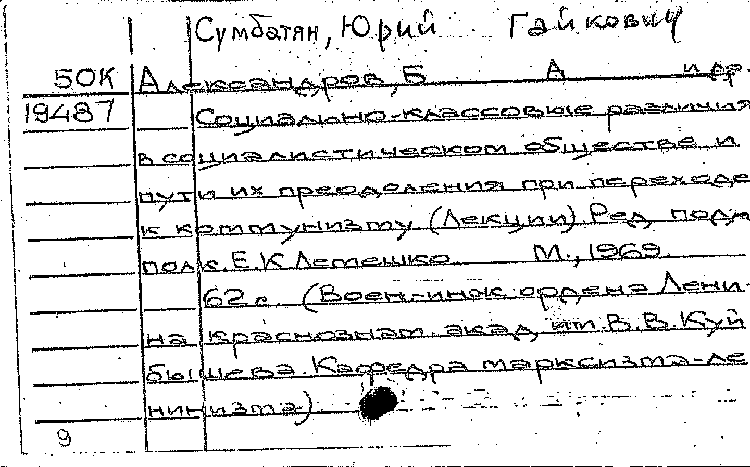 Сумбатян, Юрий Гайкович
50К Александров, Б А и др.
19487 Социально-классовые различия
в социалистическом обществе и
пути их преодоления при переходе
к коммунизму (Лекции). Ред. подп
полк. Е.К Летешко М., 1969.
62 с. (Воен-инж. ордена Лени-
на краснознам. акад. им. В. В. Куй
бышева. Кафедра марксизма-ле
нинизма)
9